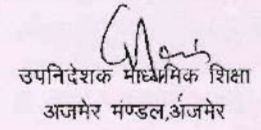 उपनिदेशक माध्यमिक शिक्षा
अजमेर मण्डल,अजमेर